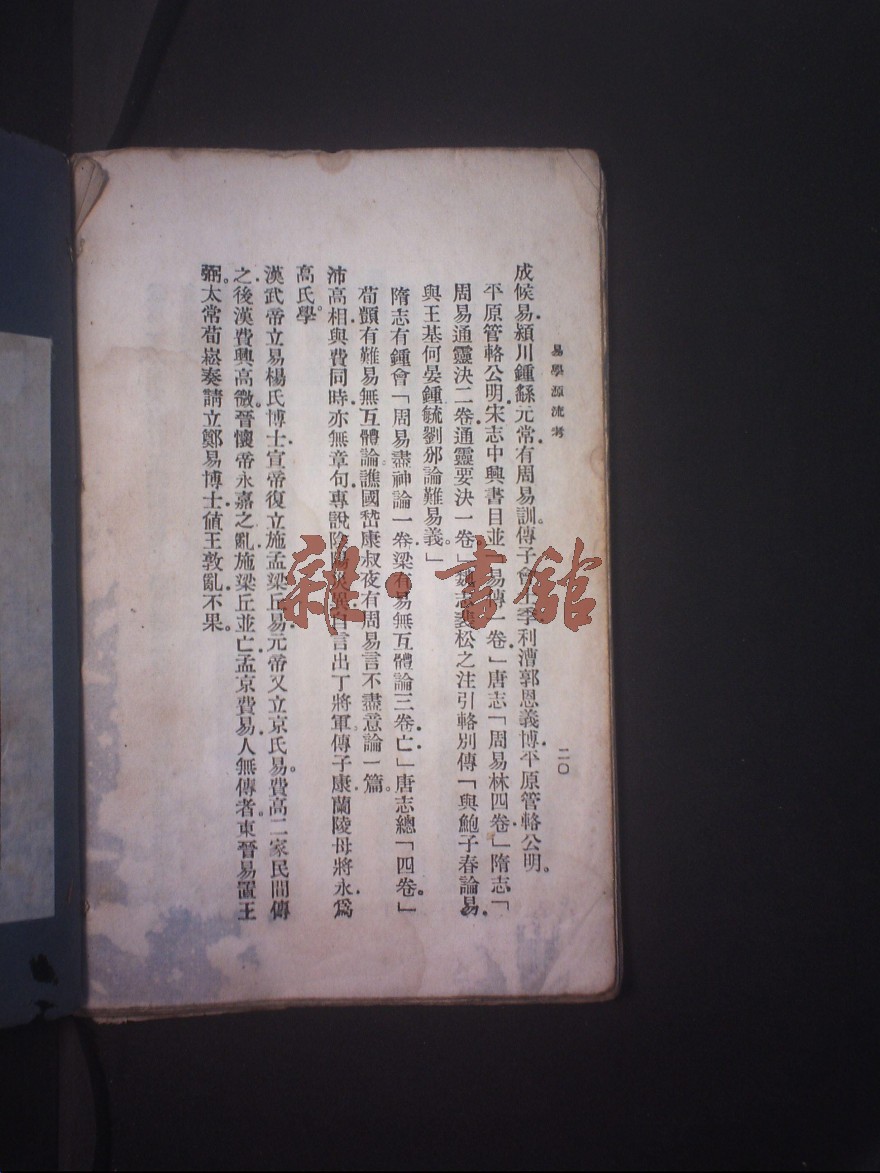 易學源流考
二〇
成侯易潁川鍾繇元常有周易訓傳子會士季利漕郭恩義博平原管輅公明。
平原管輅公明宋志中興書目並「易傳一卷」唐志「周易林四卷」隋志「
周易通靈決二卷通靈要決一卷」魏志裴松之注引輅別傳「與鮑子春論易
與王基何晏鍾毓劉邠論難易義。」
隋志有鍾會「周易盡神論一卷梁有易無互體論三卷亡」唐志總「四卷。」
荀顗有難易無互體論譙國嵇康叔夜有周易言不盡意論一篇。
沛高相與費同時亦無章句專說陰陽災異自言出丁將軍傳子康蘭陵毋將永爲
高氏學。
漢武帝立易楊氏博士宣帝復立施孟梁丘易元帝又立京氏易。費高二家民間傳
之後漢費興高微。晉懷帝永嘉之亂施梁丘並亡孟京費易人無傳者。東晉易置王
弼。太常荀崧奏請立鄭易博士值王敦亂不果。
雜·書館